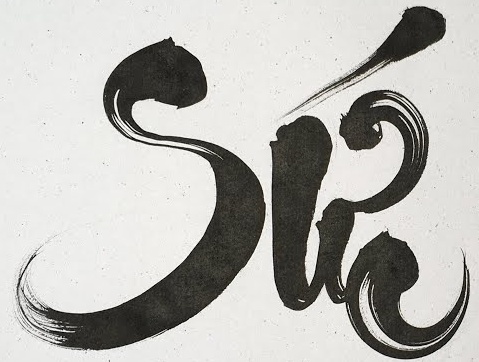 Sức